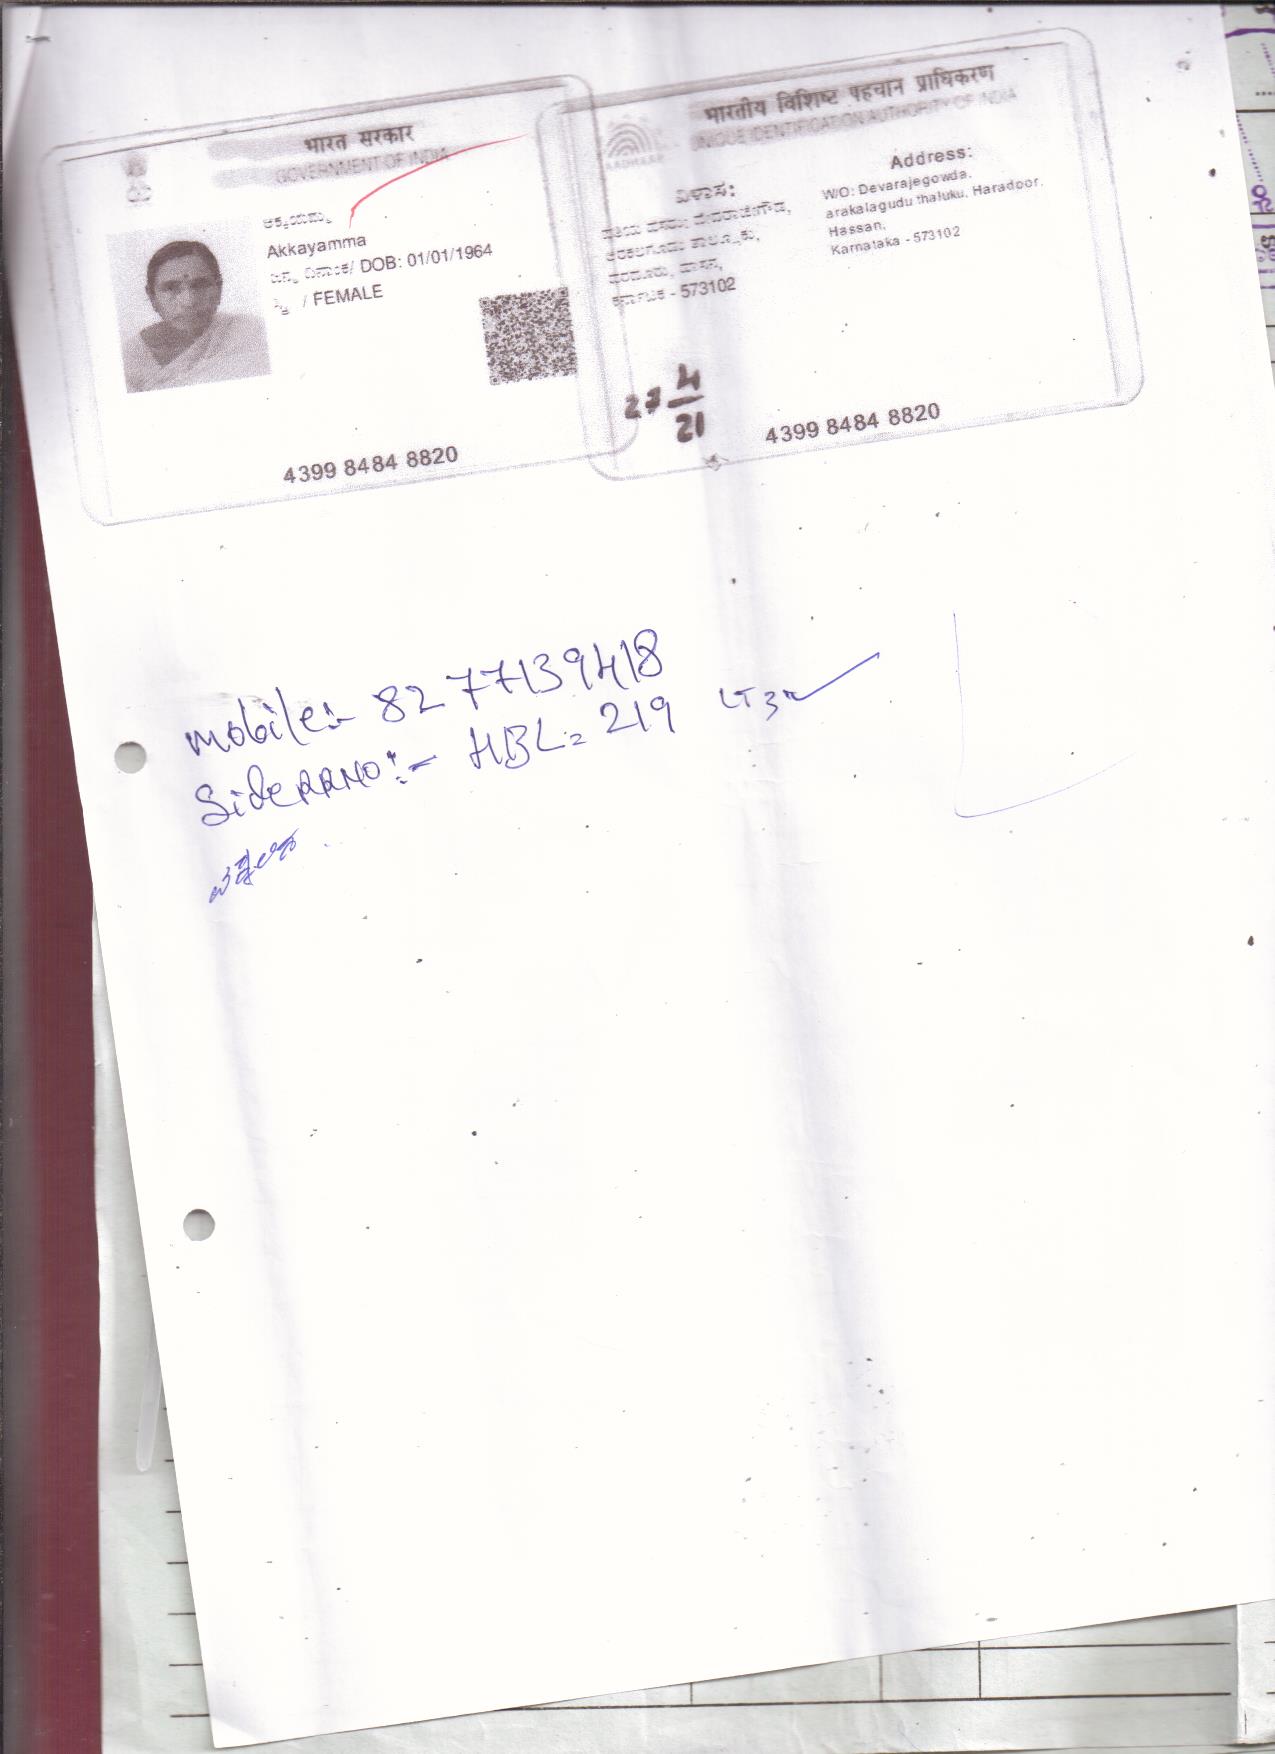 भारत सरकार
GOVERNMENT OF INDIA
ಅಕ್ಕಯಮ್ಮ
Akkayamma
ಜನ್ಮ ದಿನಾಂಕ/ DOB: 01/01/1964
ಸ್ತ್ರೀ / FEMALE
4399 8484 8820
भारतीय विशिष्ट पहचान प्राधिकरण
UNIQUE IDENTIFICATION AUTHORITY OF INDIA
AADHAAR
ವಿಳಾಸ:
ದೇವರಾಜೇಗೌಡ,
ಅರಕಲಗೂಡು ತಾಲ್ಲೂಕು,
ಹರದೂರು, ಹಾಸನ,
ಕರ್ನಾಟಕ - 573102
Address:
W/O: Devarajegowda,
arakalagudu thaluku, Haradoor,
Hassan,
Karnataka - 573102
27 4/21
4399 8484 8820
mobile:- 8277139418
Side RRNO:- HBL= 219 LT3